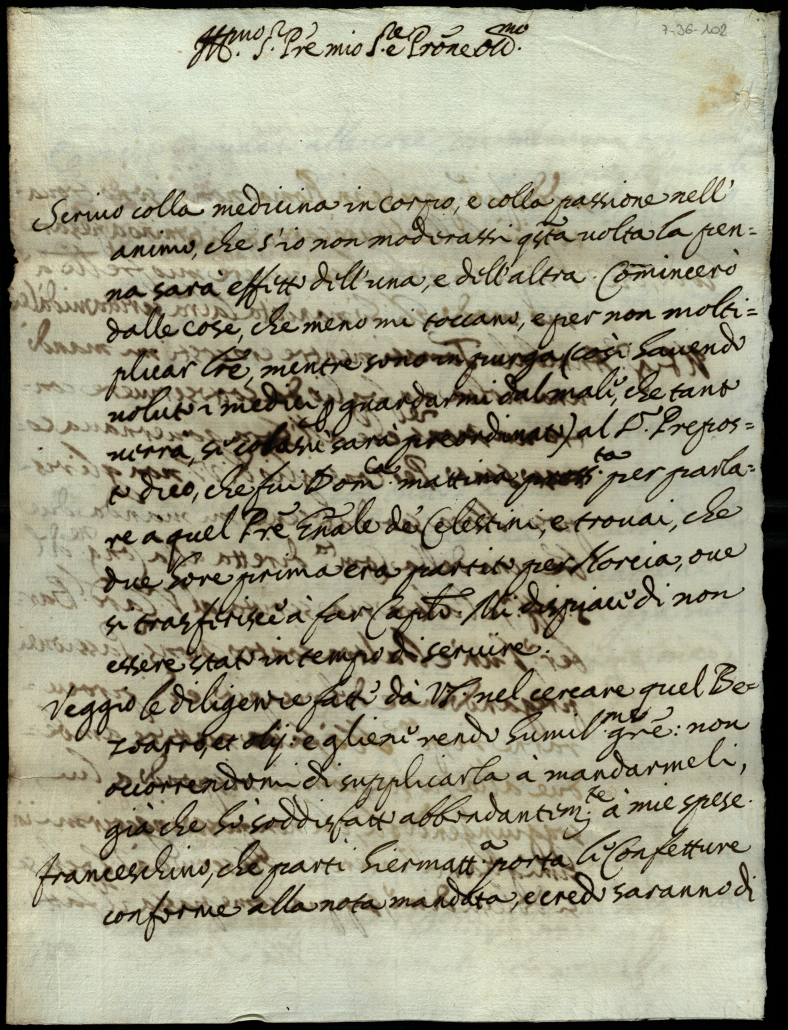 7-36-102
Ill.mo S.r P.re mio S.re e P.rone Oss.mo
Scriuo colla medicina in corpo, e colla passione nell'
animo, che s'io non moderassi q̃sta uolta la pen=
na sarà effetto dell'una, e dell'altra. Comincerò
dalle cose, che meno mi toccano, e per non molti=
plicar lr̃e, mentre sono in purga (così hauendo
uoluto i medici p guardarmi dal mali, che tanto
uerrà, se colassù sarà preordinato) al P. Prepos=
to dico, che fui Dom.ca mattina per parla=
re a quel Prẽ Gñale de Celestini, e trouai, che
due hore prima era partito per Norcia, oue
si trasferisce à far Cap.lo. Mi dispiace di non
essere stato in tempo di seruire.
Veggio le diligenze fatte dà VS. nel cercare quel Be=
zoarro, et olij: e gliene rendo humil.me gr̃e: non
occorrendomi di supplicarla à mandarmeli,
già che hò soddisfatto abbondantem.te à mie spese.
Franceschino, che partì hiermatt.a porta le Confetture
conforme alla nota mandata, e credo saranno di